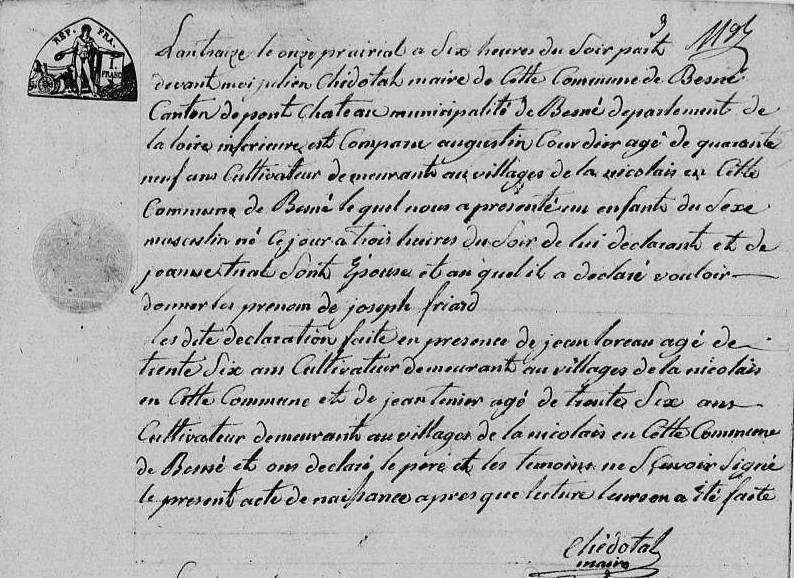 RÉP. FRA.
1 FRANC
3
Lantraize le onze prairial a Six heures du Soir part
devant moi julien Chédotal maire de Cette Commune de Besné
Canton de pont Chateau municipalité de Besné departement de
la loire inferieure est Comparu augustin Courdier agé de quarante
neuf ans Cultivateur demeurant au villages de la nicolais en Cette
Commune de Besné le quel nous a presenté un enfants du Sexe
masculin né Ce jour a trois heures du Soir de lui declarant et de
jeanne tual Sont Épouse et au quel il a declaré vouloir
donner les prenom de joseph friard
les dite declaration faite en presence de jean loreau agé de
trente Six ans Cultivateur demeurant au villages de la nicolais
en Cette Commune et de jean tenier agé de trente Six ans
Cultivateur demeurant au villages de la nicolais en Cette Commune
de Besné et ont declaré le peré et les temoins ne Sçavoir Signé
le present acte de naissance apres que lecture leurs en a été faite
Chédotal
maire